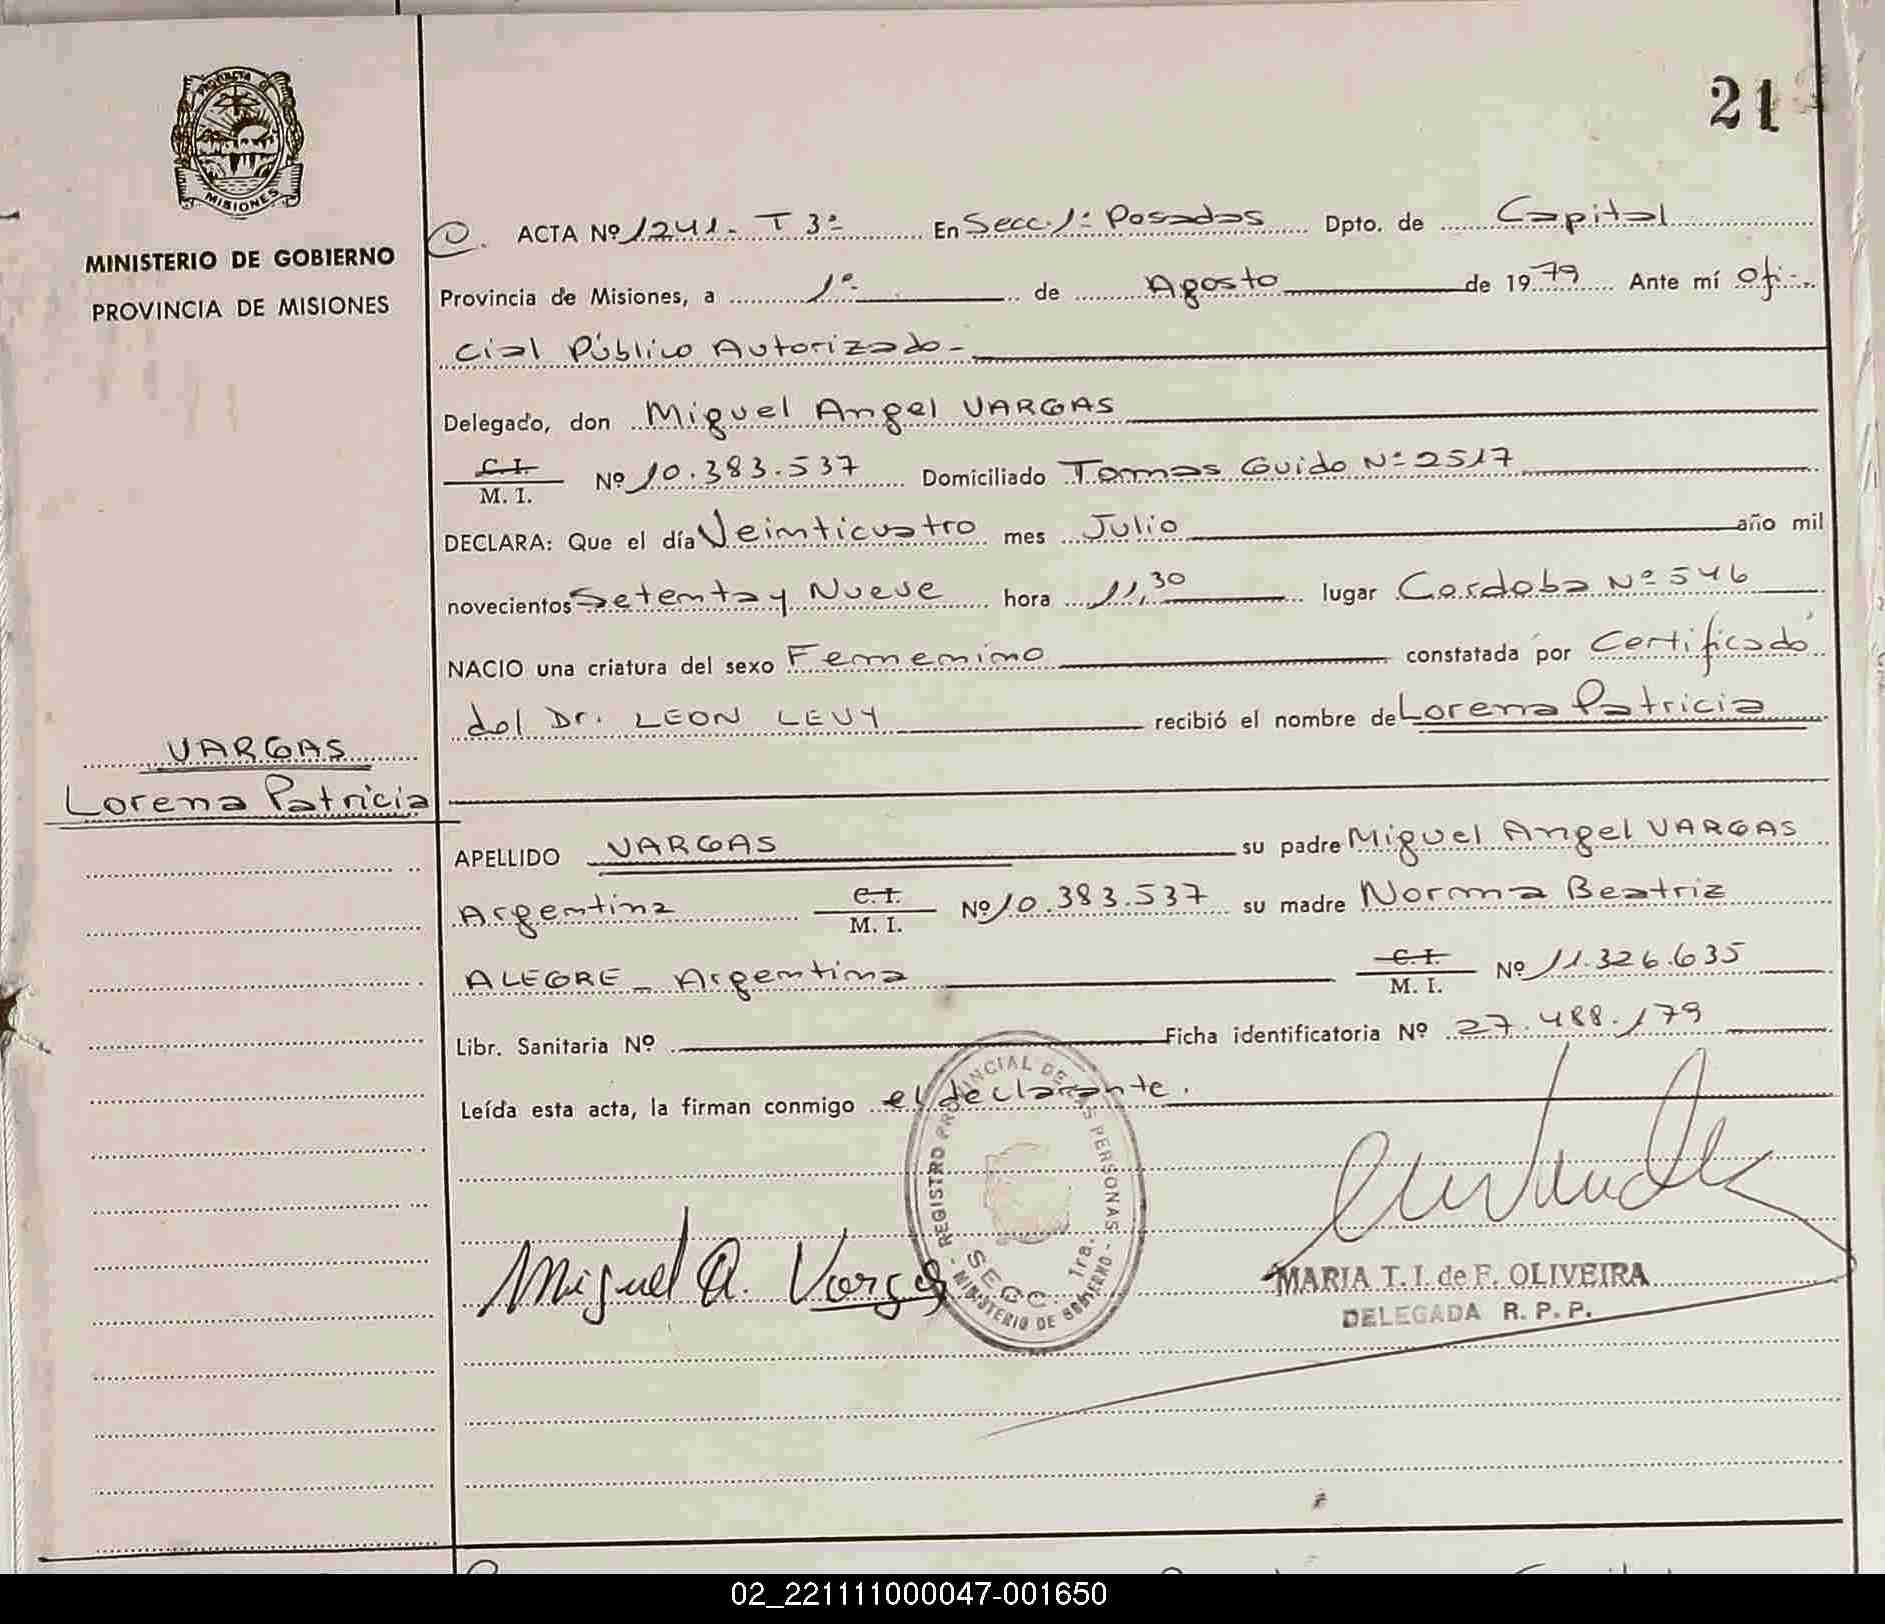 21
PROVINCIA DE
MISIONES
MINISTERIO DE GOBIERNO
PROVINCIA DE MISIONES
VARGAS
Lorena Patricia
ACTA Nº 1241 - T 3º En Secc. 1º Posadas Dpto. de Capital
Provincia de Misiones, a 1º de Agosto de 1979 Ante mí ofi-
cial Público Autorizado -
Delegado, don Miguel Angel VARGAS
C. I.
M. I. Nº 10.383.537 Domiciliado Tomas Guido Nº 2517
DECLARA: Que el día Veinticuatro mes Julio año mil
novecientos Setenta y Nueve hora 11,30 lugar Cordoba Nº 546
NACIO una criatura del sexo Femenino constatada por Certificado
del Dr. LEON LEVY recibió el nombre de Lorena Patricia
APELLIDO VARGAS su padre Miguel Angel VARGAS
Argentina C. I. M. I. Nº 10.383.537 su madre Norma Beatriz
ALEGRE - Argentina C. I. M. I. Nº 11.326.635
Libr. Sanitaria Nº Ficha identificatoria Nº 27.488.179
Leída esta acta, la firman conmigo el declarante.
REGISTRO PROVINCIAL DE LAS PERSONAS
SECC. 1ra.
- MINISTERIO DE GOBIERNO -
Miguel A. Vargas
MARIA T. I. de F. OLIVEIRA
DELEGADA R. P. P.
02_221111000047-001650